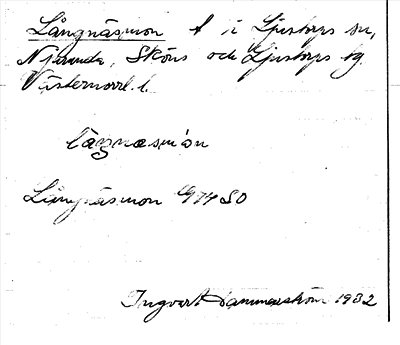 Långnäsmon t i Ljustorps sn,
Njurunda, Sköns och Ljustorps tg
Västernorrl. l.
lågnasmón
Långnäsmon G74 SO
Ingvart Hammarström 1932